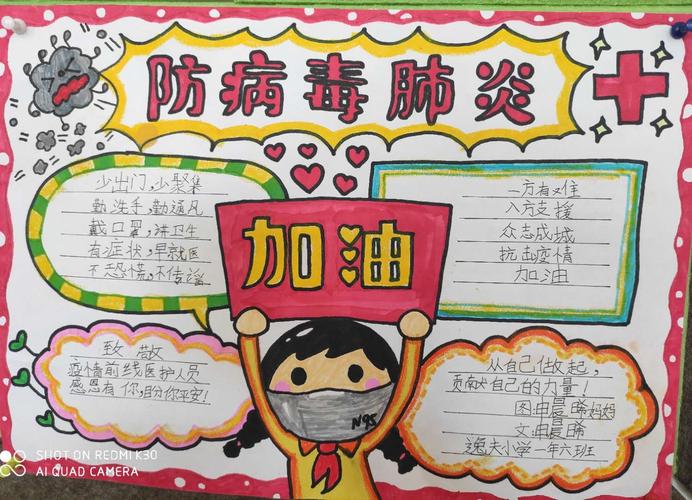 防病毒肺炎
少出门,少聚集
勤洗手,勤通风
戴口罩,讲卫生
有症状,早就医
不恐慌,不传谣
加油
一方有难
八方支援
众志成城
抗击疫情
加油
致敬
疫情前线医护人员
感恩有你,盼你平安!
从自己做起,
贡献自己的力量!
图:田晨曦妈妈
文:田晨曦
逸夫小学一年六班
N95
SHOT ON REDMI K30
AI QUAD CAMERA